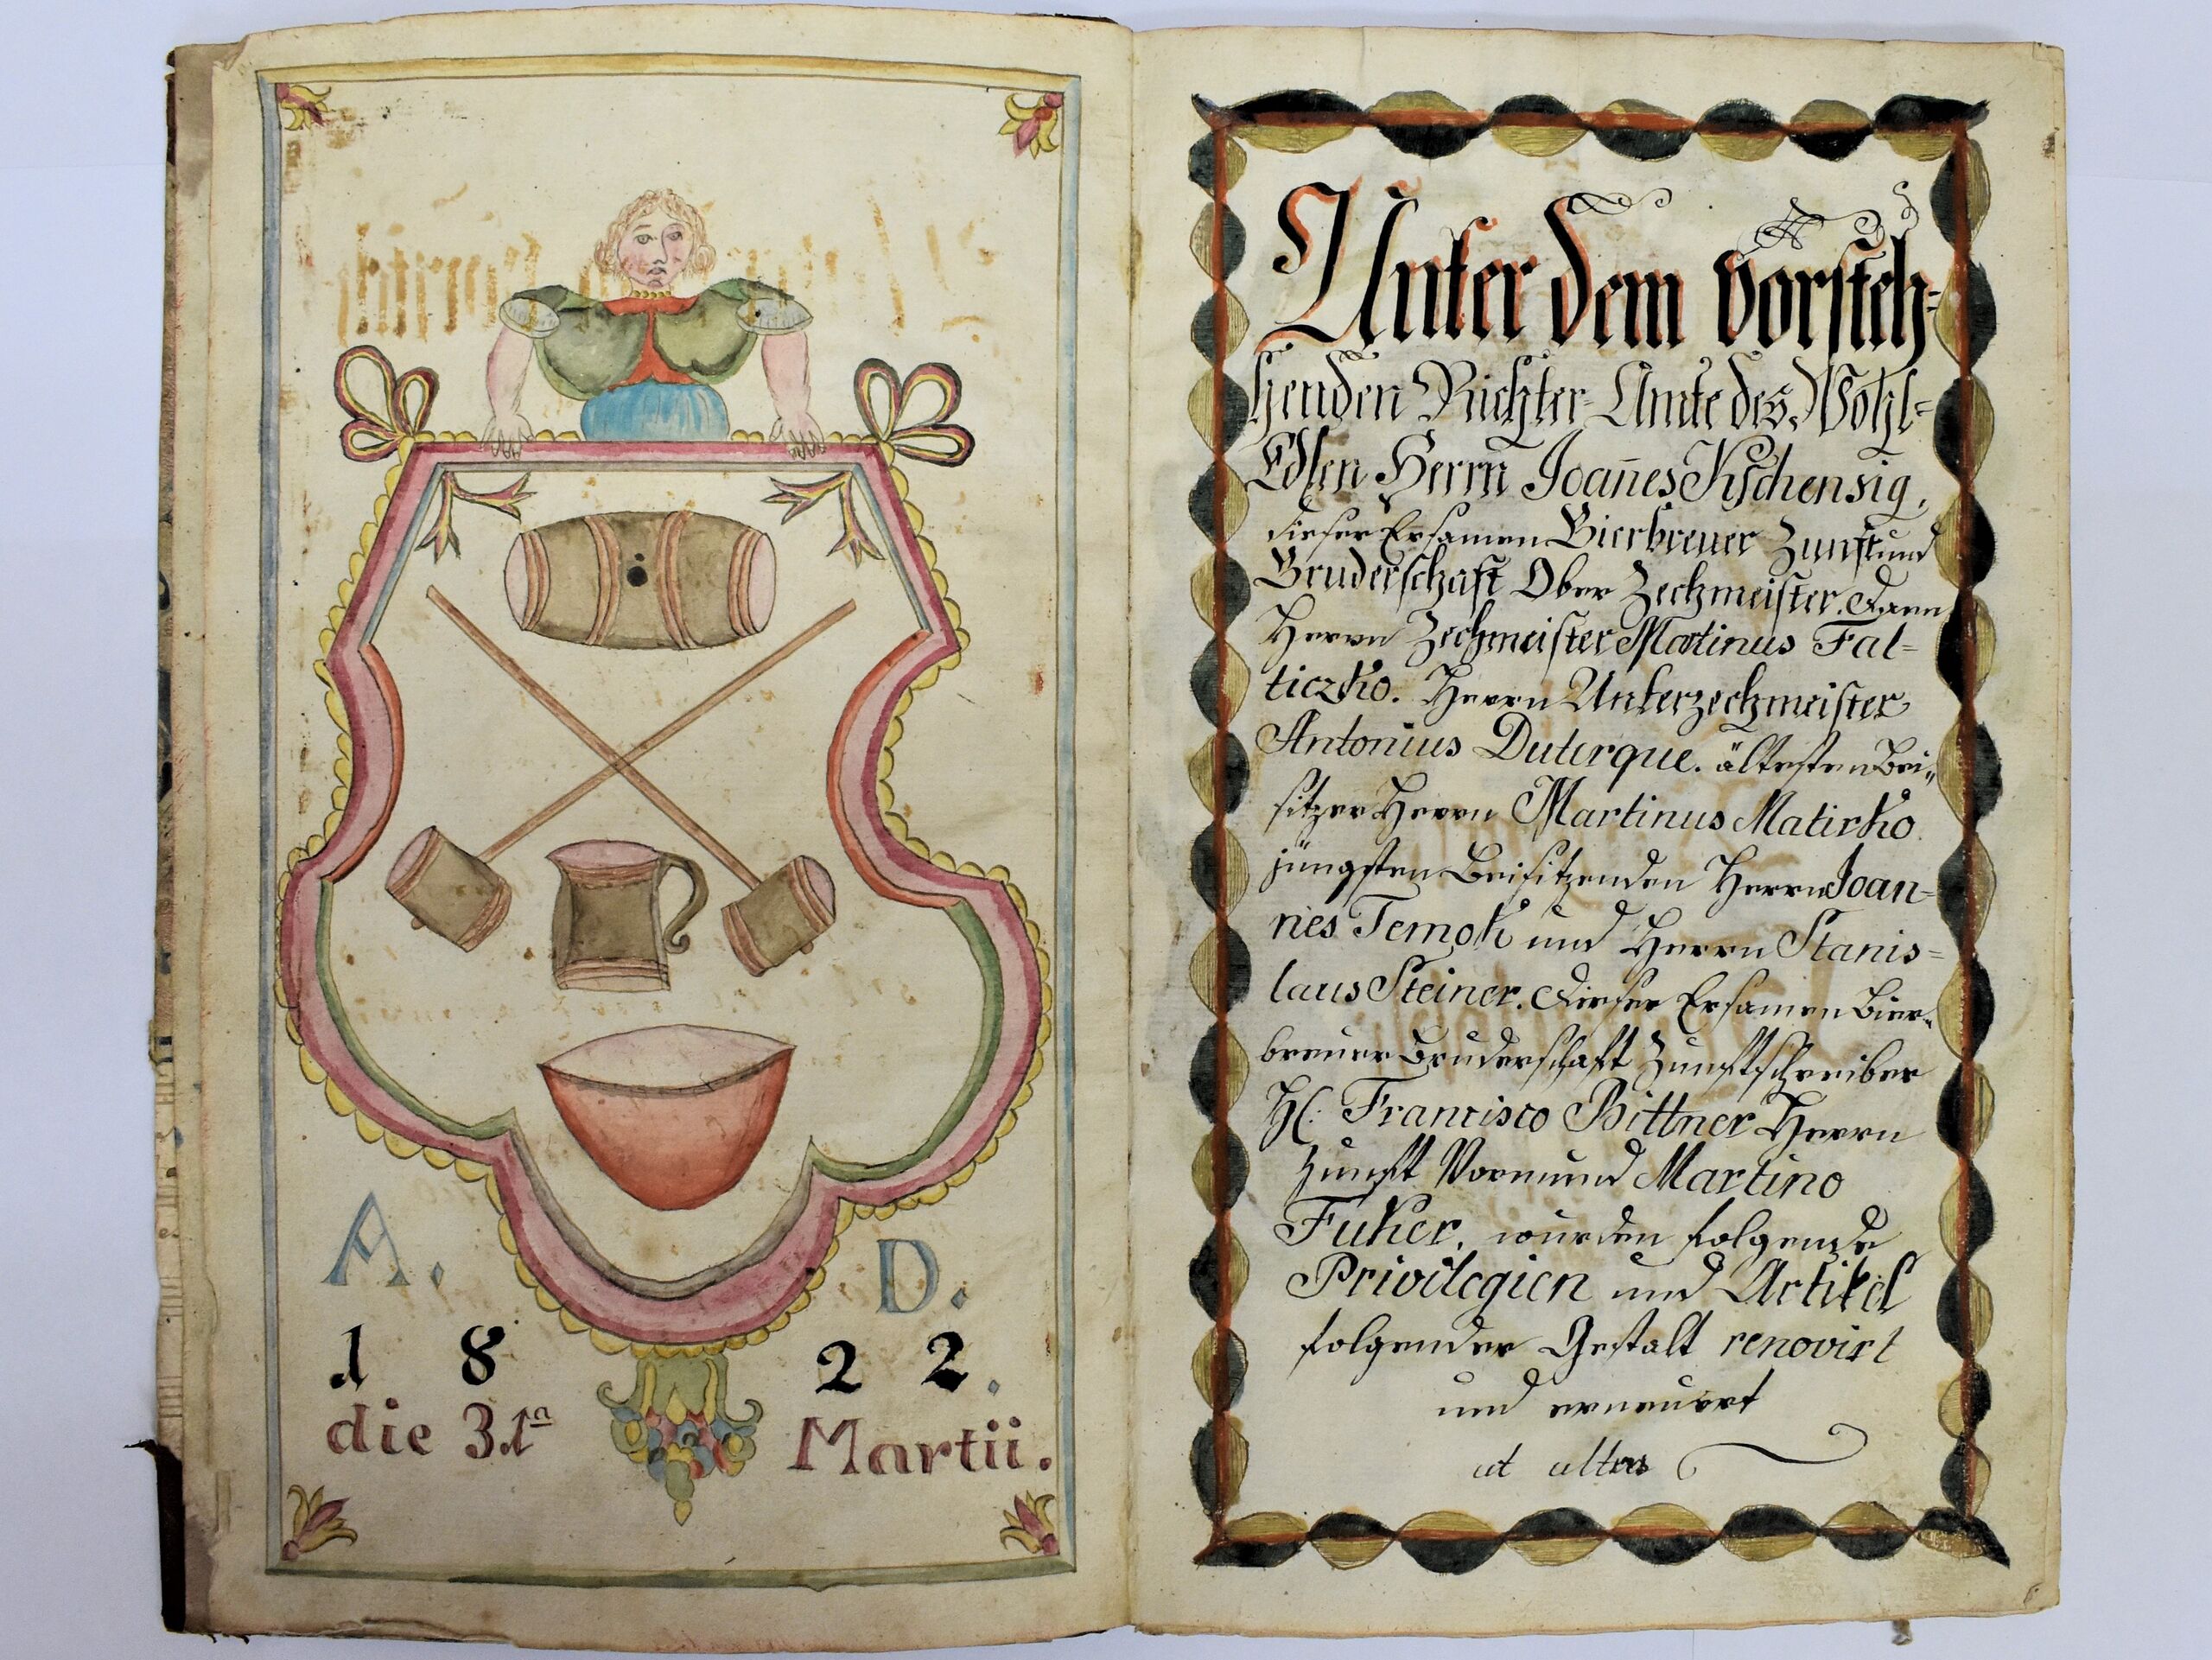 A. D.
1 8 2 2.
die 31ᵃ Martii.
Unter dem vorsteh=
henden Richter-Amte des Wohl=
Edlen Herrn Joan̄es Kschensig,
dieser Ersamen Bierbreuer Zunft und
Bruderschaft Ober Zechmeister. dann
Herrn Zechmeister Martinus Fal=
ticzko. Herrn Unterzechmeister
Antonius Duterque. ältesten Bei„
sitzer Herrn Martinus Matirko
jüngsten Beisitzenden Herrn Joan=
nes Temok und Herrn Stanis=
laus Steiner. dieser Ersamen Bier„
breuer Bruderschaft Zunftschreiber
H: Francisco Bittner Herrn
Zunft Vormund Martino
Fuker, wurden folgende
Privilegien und Artikel
folgender Gestalt renovirt
und erneuert
ut